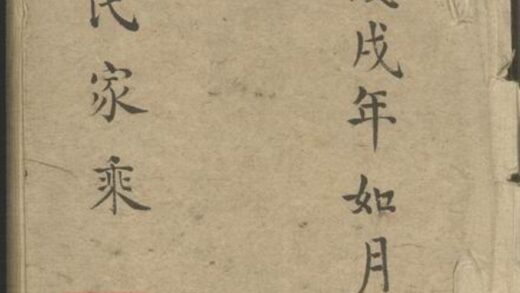 戌年如月
氏家乘